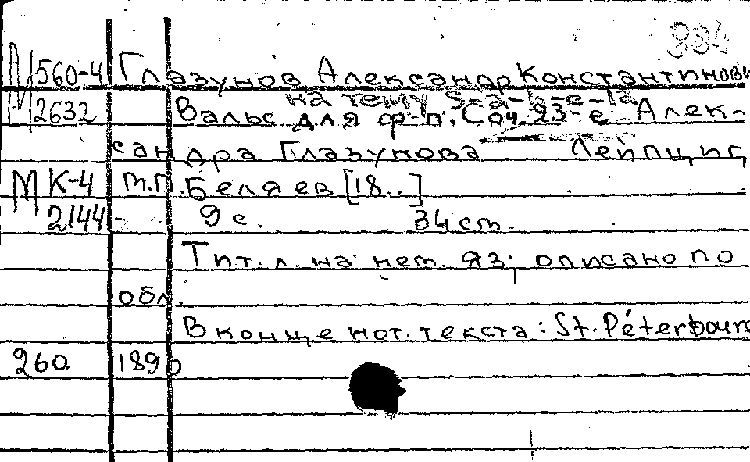 334
М 560-4 Глазунов Александр Константинович
на тему S-a-b-e-la
М 2632 Вальс для ф-п. Соч. 23-е Алек-
сандра Глазунова Лейпциг
М К-4 М.П. Беляев [18..]
2144 9 с. 34 см.
Тит. л. на нем. яз; описано по
обл.
В конце нот. текста: St. Péterbourg
260 1890